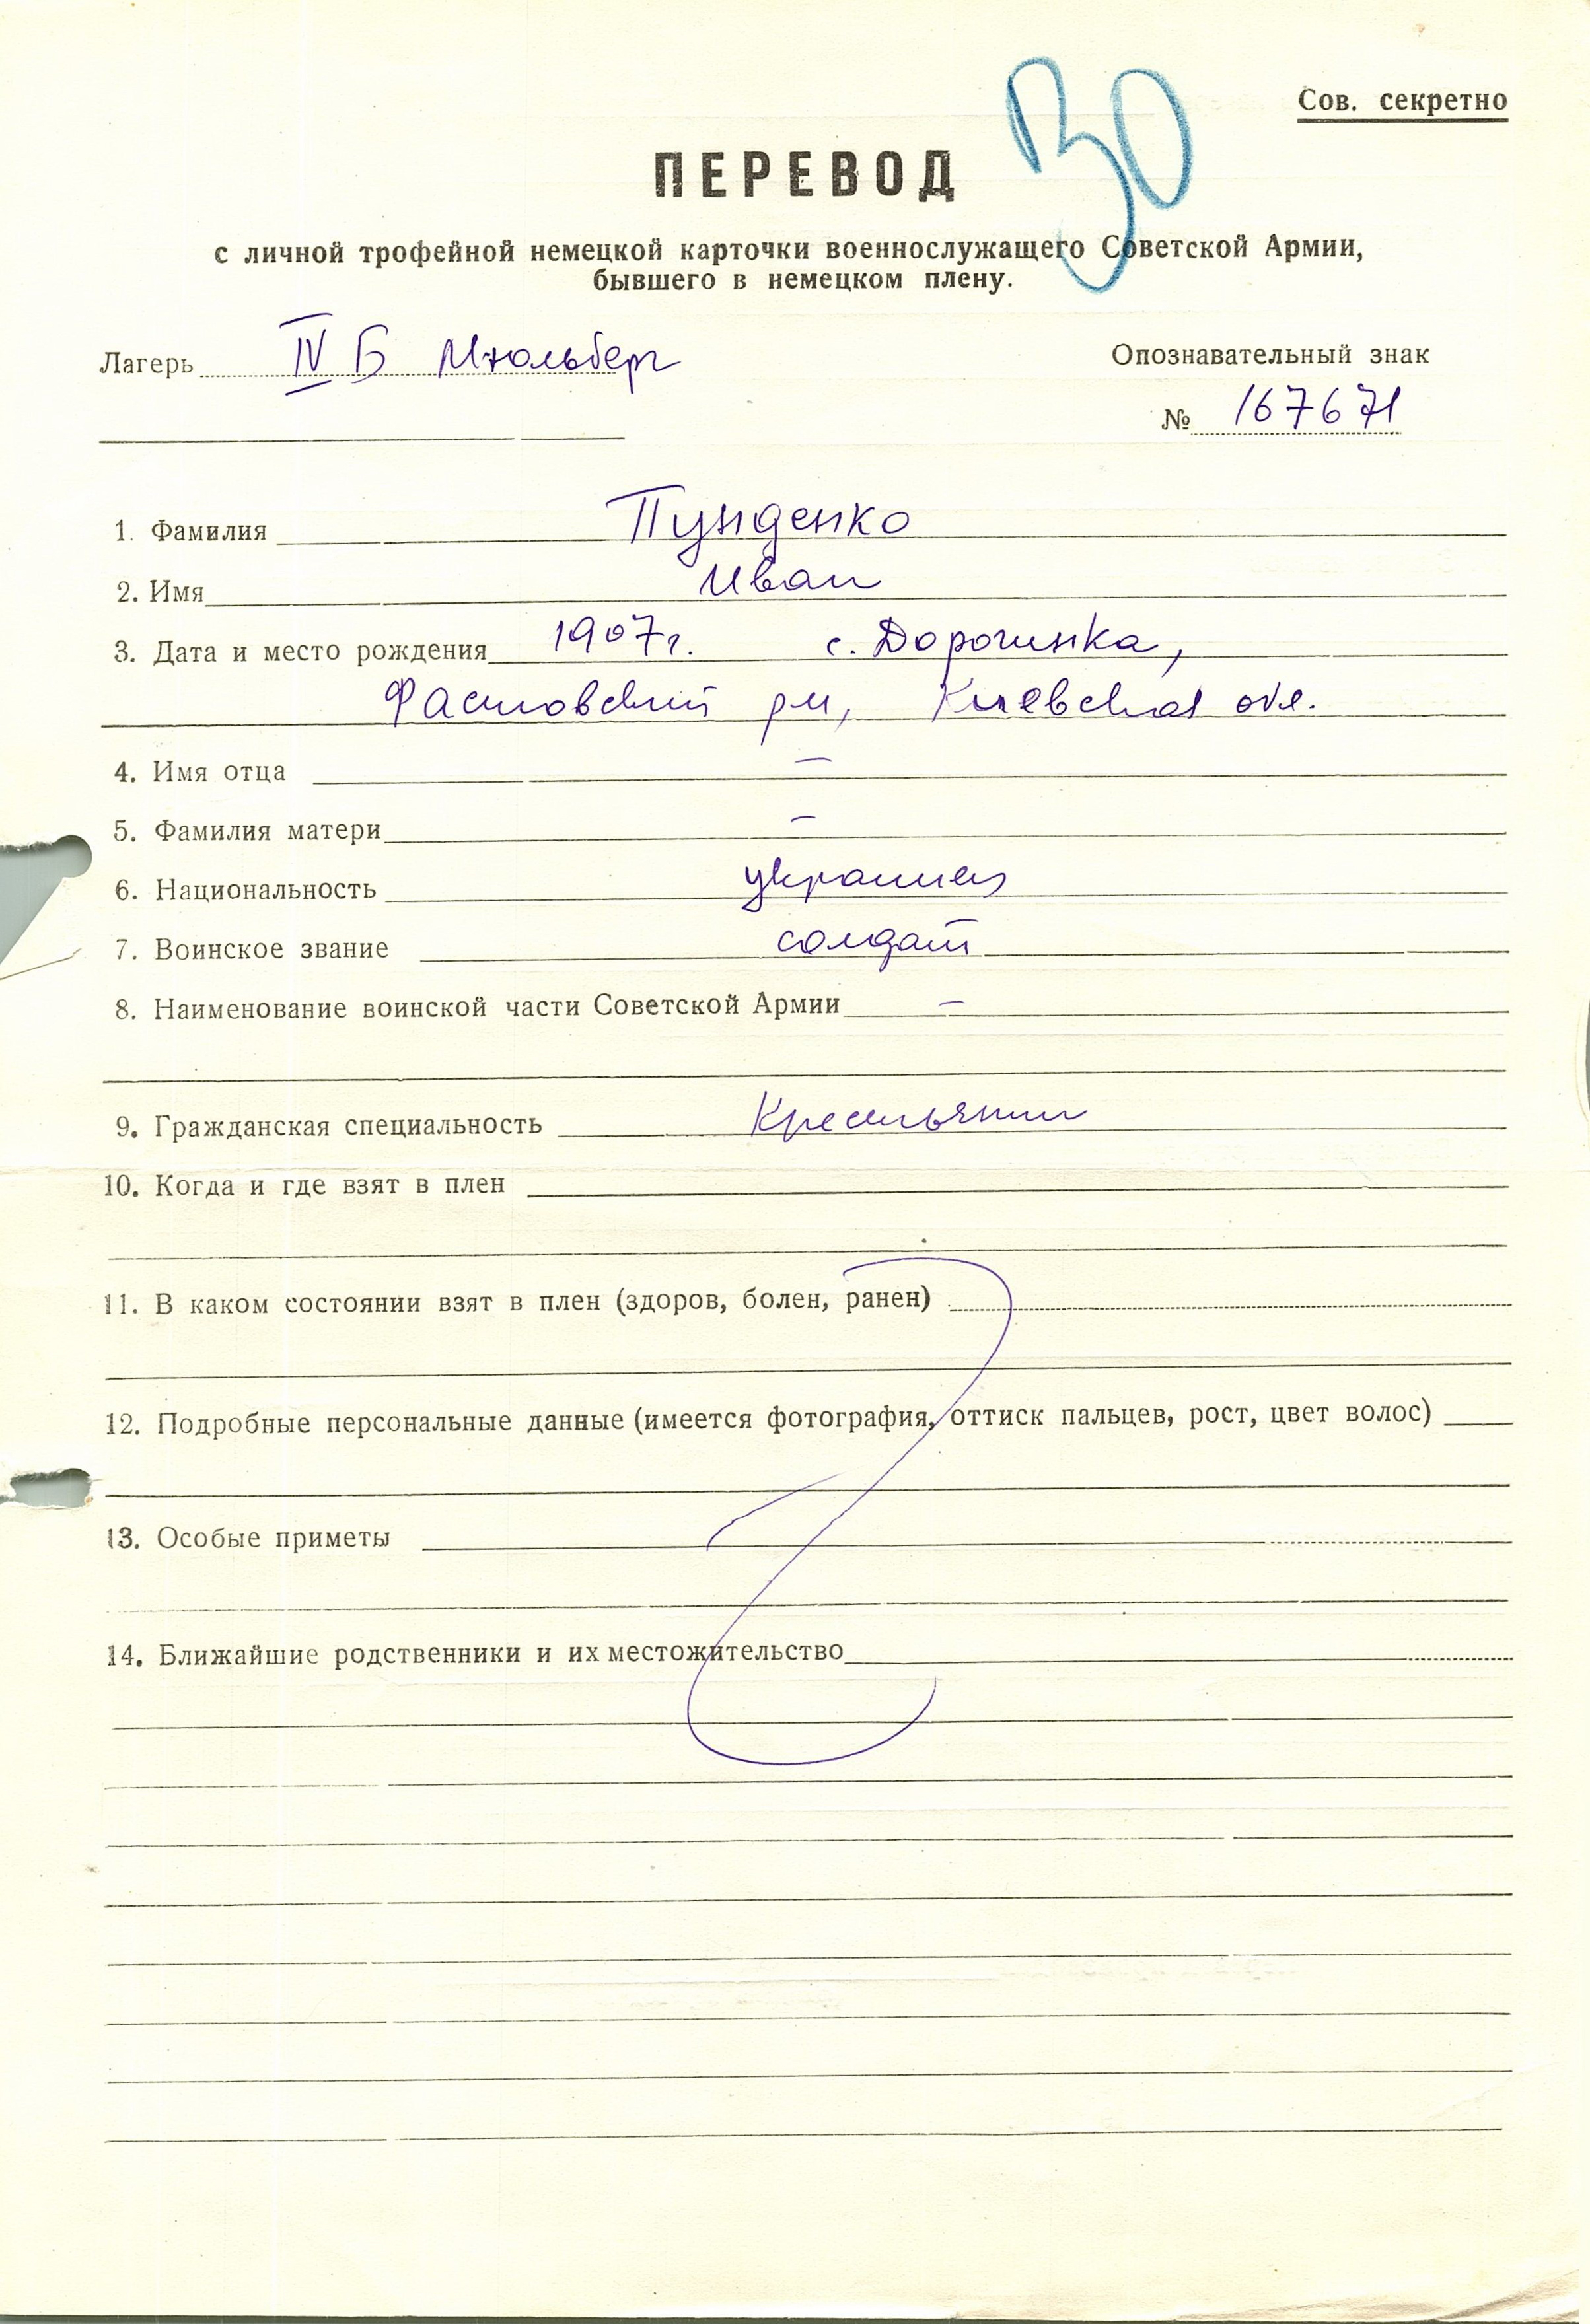 30
Сов. секретно
ПЕРЕВОД
с личной трофейной немецкой карточки военнослужащего Советской Армии,
бывшего в немецком плену.
Лагерь IV Б Мюльберг
Опознавательный знак
№ 167671
1. Фамилия Пунденко
2. Имя Иван
3. Дата и место рождения 1907г. с. Дорогинка,
Фастовский рн, Киевская обл.
4. Имя отца —
5. Фамилия матери —
6. Национальность украинец
7. Воинское звание солдат
8. Наименование воинской части Советской Армии —
9. Гражданская специальность Крестьянин
10. Когда и где взят в плен
11. В каком состоянии взят в плен (здоров, болен, ранен)
12. Подробные персональные данные (имеется фотография, оттиск пальцев, рост, цвет волос)
13. Особые приметы
14. Ближайшие родственники и их местожительство